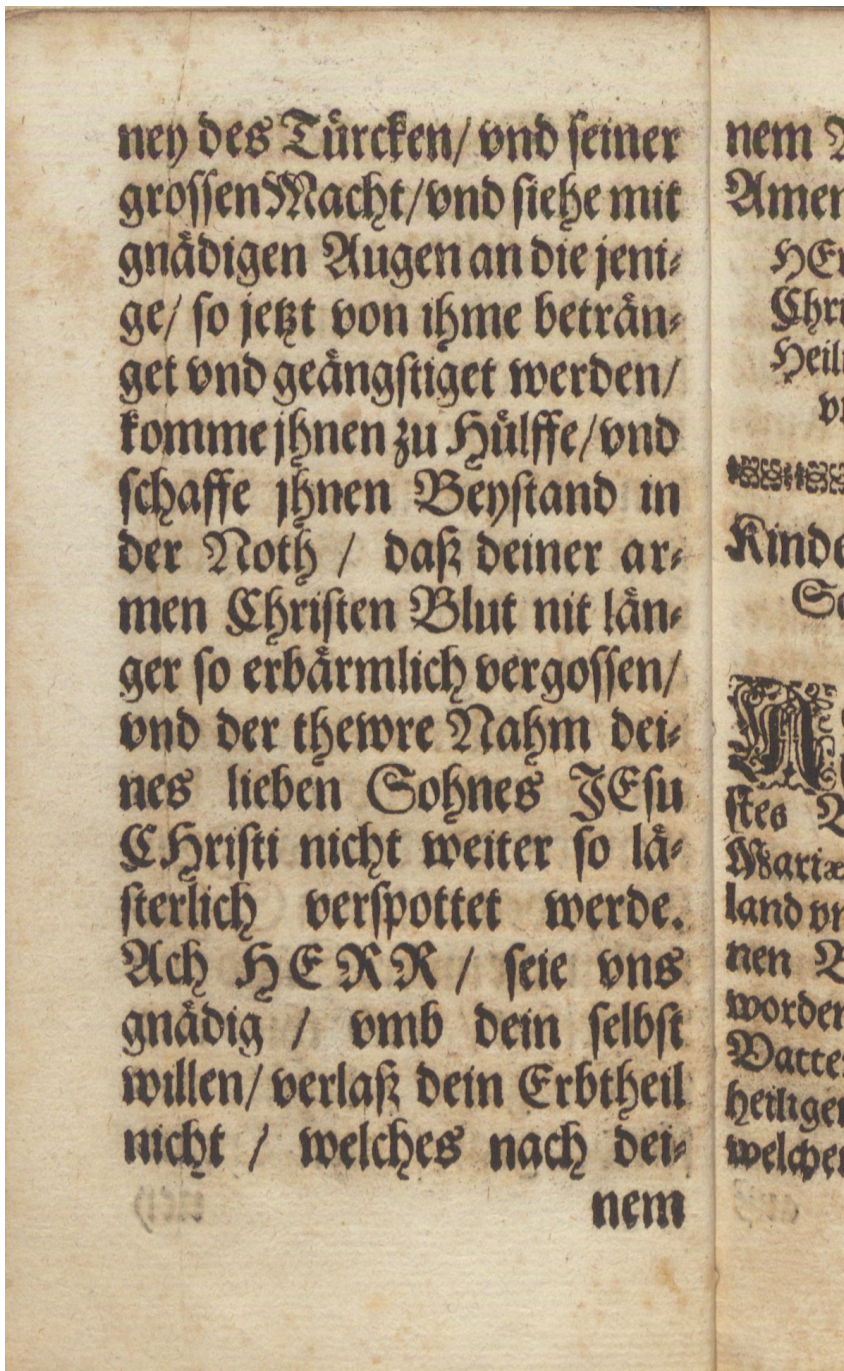 ney des Türcken/ vnd seiner
grossen Macht/ vnd siehe mit
gnädigen Augen an die jeni-
ge/ so jetzt von ihme beträn-
get vnd geängstiget werden/
komme jhnen zu Hülffe/ vnd
schaffe jhnen Beystand in
der Noth / daß deiner ar-
men Christen Blut nit län-
ger so erbärmlich vergossen/
vnd der thewre Nahm dei-
nes lieben Sohnes JEsu
CHristi nicht weiter so lä-
sterlich verspottet werde.
Ach HERR / seie vns
gnädig / vmb dein selbst
willen/ verlaß dein Erbtheil
nicht / welches nach dei-
nem
nem
Amen
stes
Mariæ
land
nen
worden
heiligen
welchen